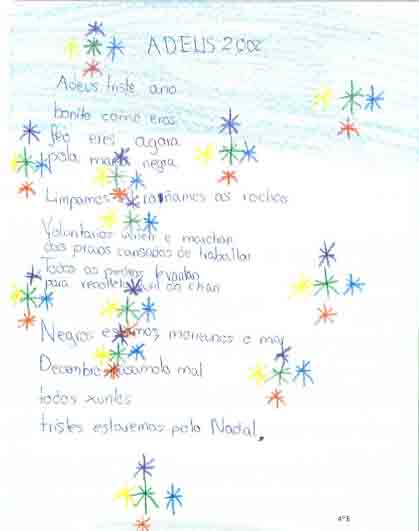 ADEUS 2002
Adeus triste ano
bonito como eras
feo eres agora
pola marea negra
Limpamos rañamos as rochas
Voluntarios veñen e marchan
das praias cansados de traballar
Todos as pedras levantan
para recoller do chan
Negros estamos, morremos o mar
Decembro pasamolo mal
todos xuntos
tristes estaremos polo Nadal.
4ºB